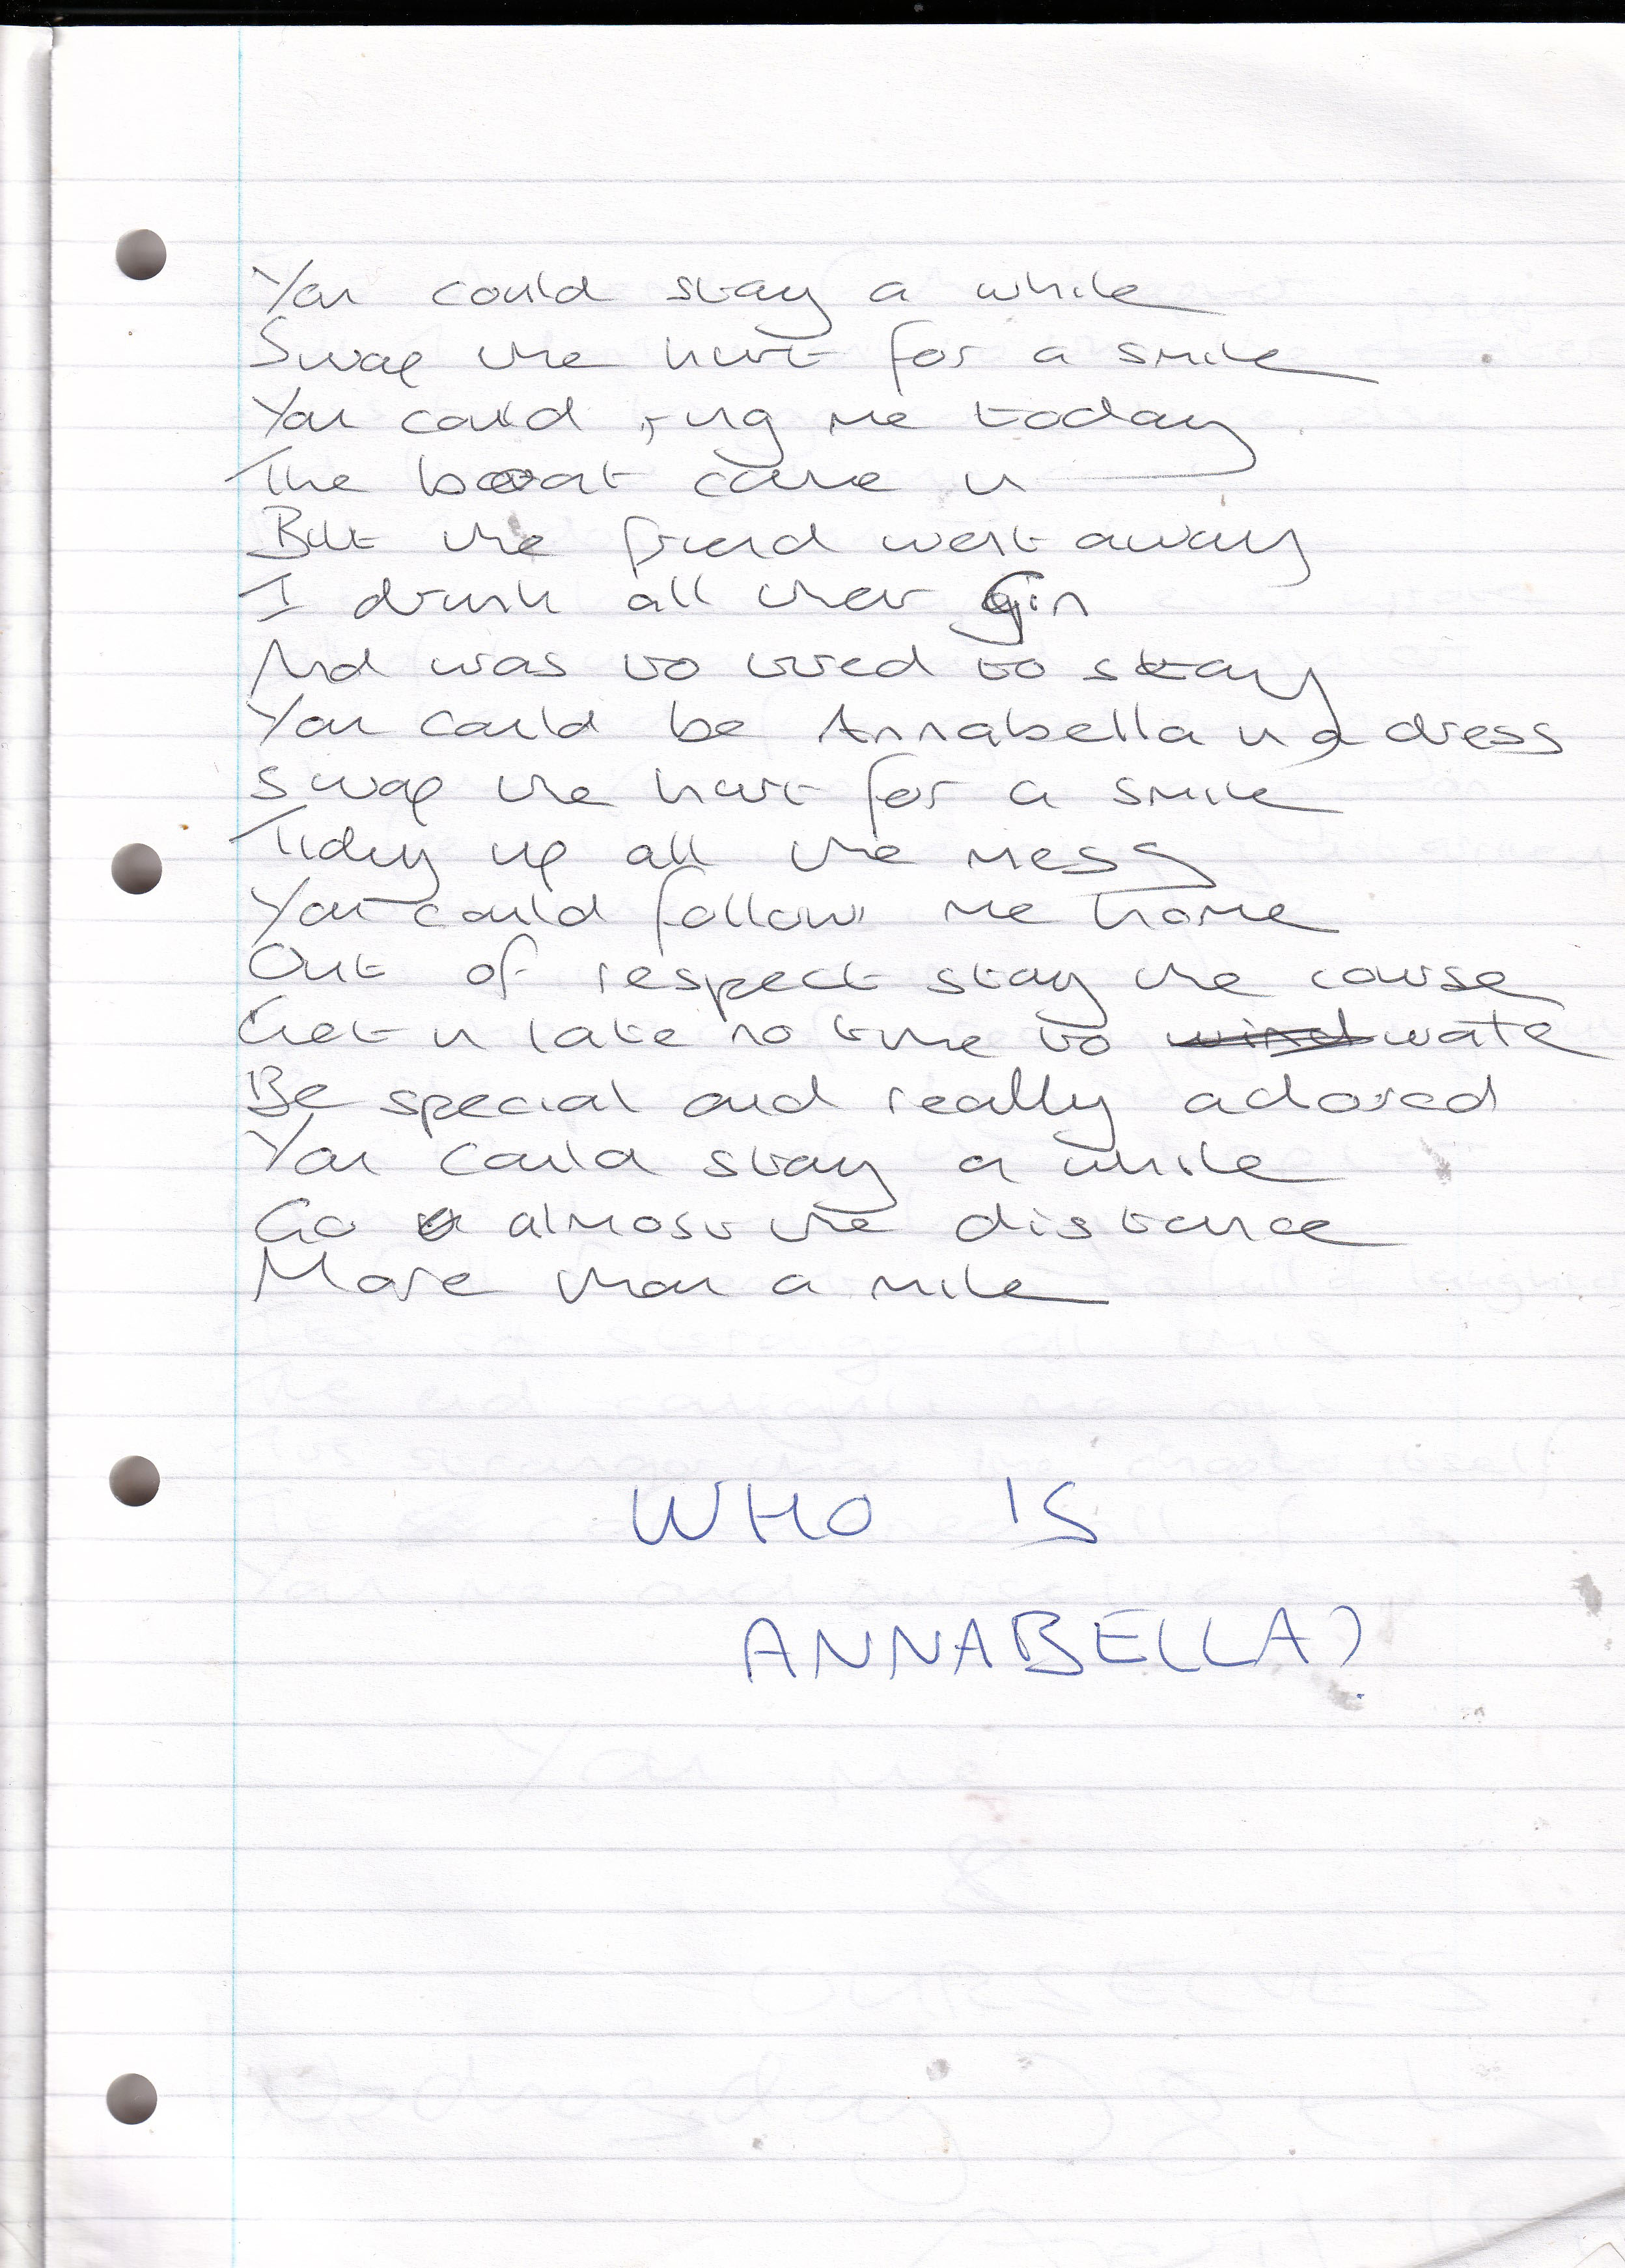 You could stay a while
Swap the hurt for a smile
You could ring me today
The boat came in
But the friend went away
I drink all their Gin
And was to tired to stay
You could be Annabella in a dress
Swap the hurt for a smile
Tidy up all the mess
You could follow me home
Out of respect stay the course
Get in late no time to wate
Be special and really adored
You could stay a while
Go almost the distance
More than a mile
WHO IS
ANNABELLA?